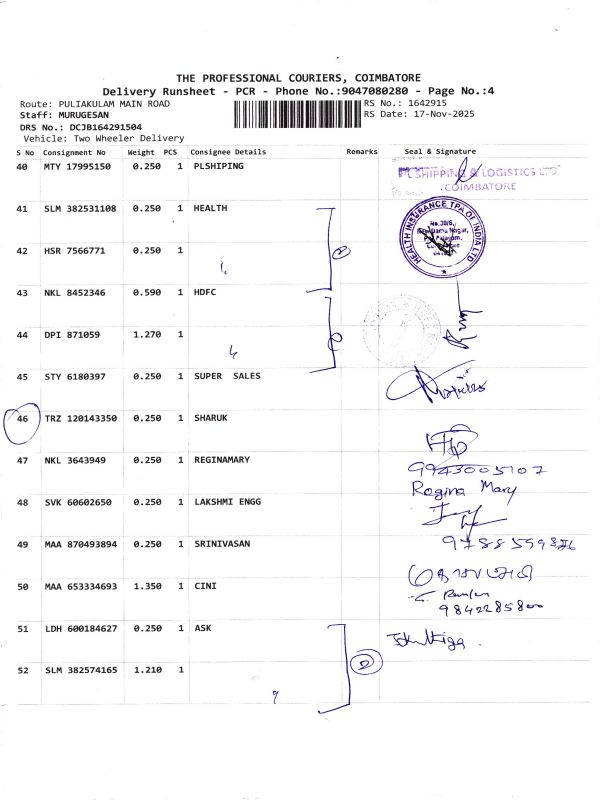 THE PROFESSIONAL COURIERS, COIMBATORE
Delivery Runsheet - PCR - Phone No.:9047080280 - Page No.:4
Route: PULIAKULAM MAIN ROAD RS No.: 1642915
Staff: MURUGESAN RS Date: 17-Nov-2025
DRS No.: DCJB164291504
Vehicle: Two Wheeler Delivery
S No Consignment No Weight PCS Consignee Details Remarks Seal & Signature
40 MTY 17995150 0.250 1 PLSHIPING
PL SHIPPING & LOGISTICS LTD.
COIMBATORE
41 SLM 382531108 0.250 1 HEALTH
HEALTH INSURANCE TPA OF INDIA LTD
42 HSR 7566771 0.250 1
43 NKL 8452346 0.590 1 HDFC
44 DPI 871059 1.270 1
45 STY 6180397 0.250 1 SUPER SALES
46 TRZ 120143350 0.250 1 SHARUK
47 NKL 3643949 0.250 1 REGINAMARY
9943005107
Regina Mary
48 SVK 60602650 0.250 1 LAKSHMI ENGG
49 MAA 870493894 0.250 1 SRINIVASAN
50 MAA 653334693 1.350 1 CINI
51 LDH 600184627 0.250 1 ASK
52 SLM 382574165 1.210 1